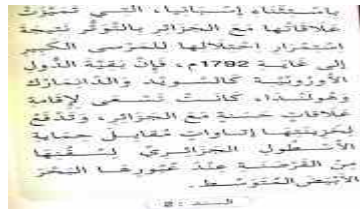 باستثناء إسبانيا، التي تميّزت
علاقاتها مع الجزائر بالتوتّر نتيجة
استمرار احتلالها للمرسى الكبير
إلى غاية 1792م، فإنّ بقيّة الدّول
الأوروبيّة كالسّويد والدّانمارك
وهولندا، كانت تسعى لإقامة
علاقات حسنة مع الجزائر، وتدفع
لخزينتها إتاوات مقابل حماية
الأسطول الجزائريّ لسفنها
من القرصنة عند عبورها البحر
الأبيض المتوسّط.
السند : 2